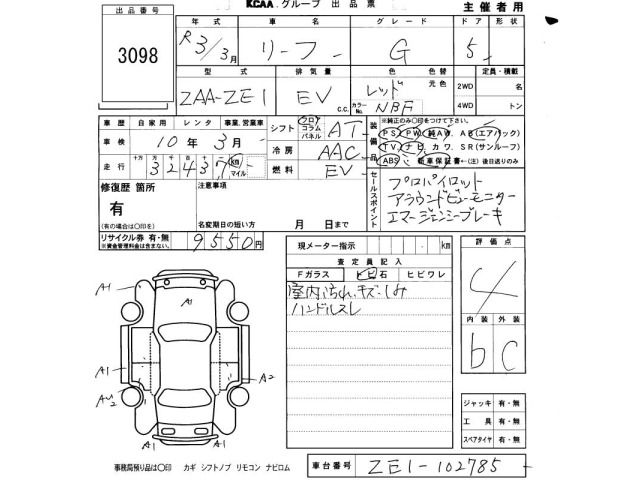 KCAA.グループ 出品票
主催者用
出品番号
3098
年式 車名 グレード ドア 形状
R 3/3月 リーフ G 5
型式 排気量 色 色替 定員・積載
ZAA-ZE1 EV C.C. レッド 元色 2WD 名
カラーNo. NBF 4WD トン
車歴 自家用 レンタ 事業、営業車
シフト フロア コラム パネル AT
装備品
※純正のみ〇印をつけて下さい。
PS PW 純AW AB(エアバック)
TV ナビ カワ SR(サンルーフ)
ABS 新車保証書←(注)後日送りのみ
車検 10年3月
冷房 AAC
走行 十万 万 千 百 十 3 2 4 3 7 km マイル
燃料 EV
修復歴 箇所
有
(有の場合は〇印を)
注意事項
名変期日の短い方 月 日まで
セールスポイント
プロパイロット
アラウンドビューモニター
エマージェンシーブレーキ
リサイクル券 有・無
※資金管理料金は含まない。
9550円
現メーター指示 km
評価点
4
査定員記入
Fガラス トビ石 ヒビワレ
室内汚れ、キズ・しみ
ハンドルスレ
内装 外装
b C
A1
A1
A1
A2
A1
A1
ジャッキ 有・無
工具 有・無
スペアタイヤ 有・無
事務局預り品は〇印 カギ シフトノブ リモコン ナビロム
車台番号 ZE1-102785